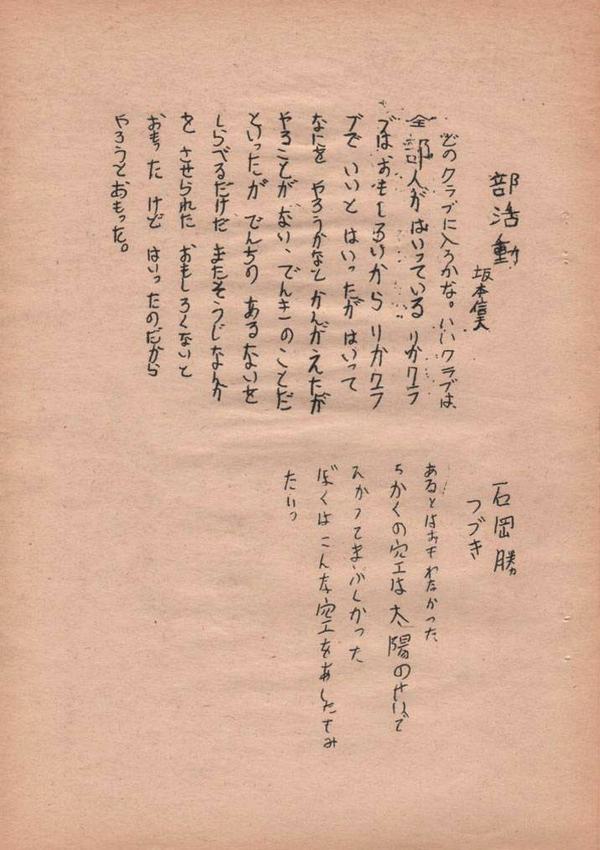 部活動
坂本信夫
どのクラブに入ろかな。いいクラブは、
全部人がはいっている りかクラ
ブはおもしろいから りかクラ
ブで いいと はいったが はいって
なにを やろうかなと かんがえたが
やることが ない、でんきの ことだ
といったが でんちの あるないを
しらべるだけだ またそうじなんか
を させられた おもしろくないと
おもった けど はいったのだから
やろうとおもった。
石岡勝
つづき
あるとはおもわなかった、
ちかくの空は 太陽のせいで
まぶしかった
ぼくはこんな空を
たい。